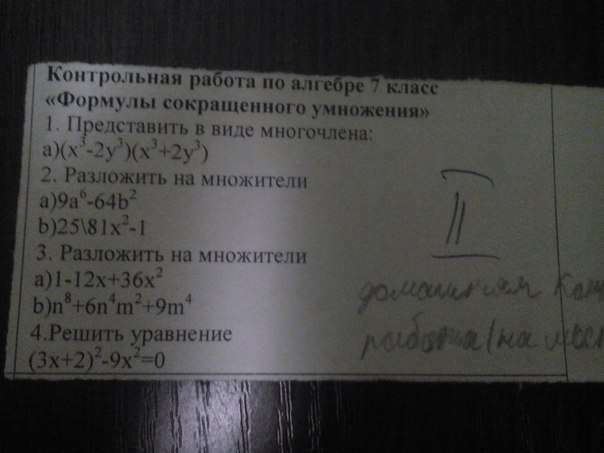 Контрольная работа по алгебре 7 класс
«Формулы сокращенного умножения»
1. Представить в виде многочлена:
a)(x³-2y³)(x³+2y³)
2. Разложить на множители
a)9a⁶-64b²
b)25\81x²-1
3. Разложить на множители
a)1-12x+36x²
b)n⁸+6n⁴m²+9m⁴
4.Решить уравнение
(3x+2)²-9x²=0
II
домашняя
работа (на